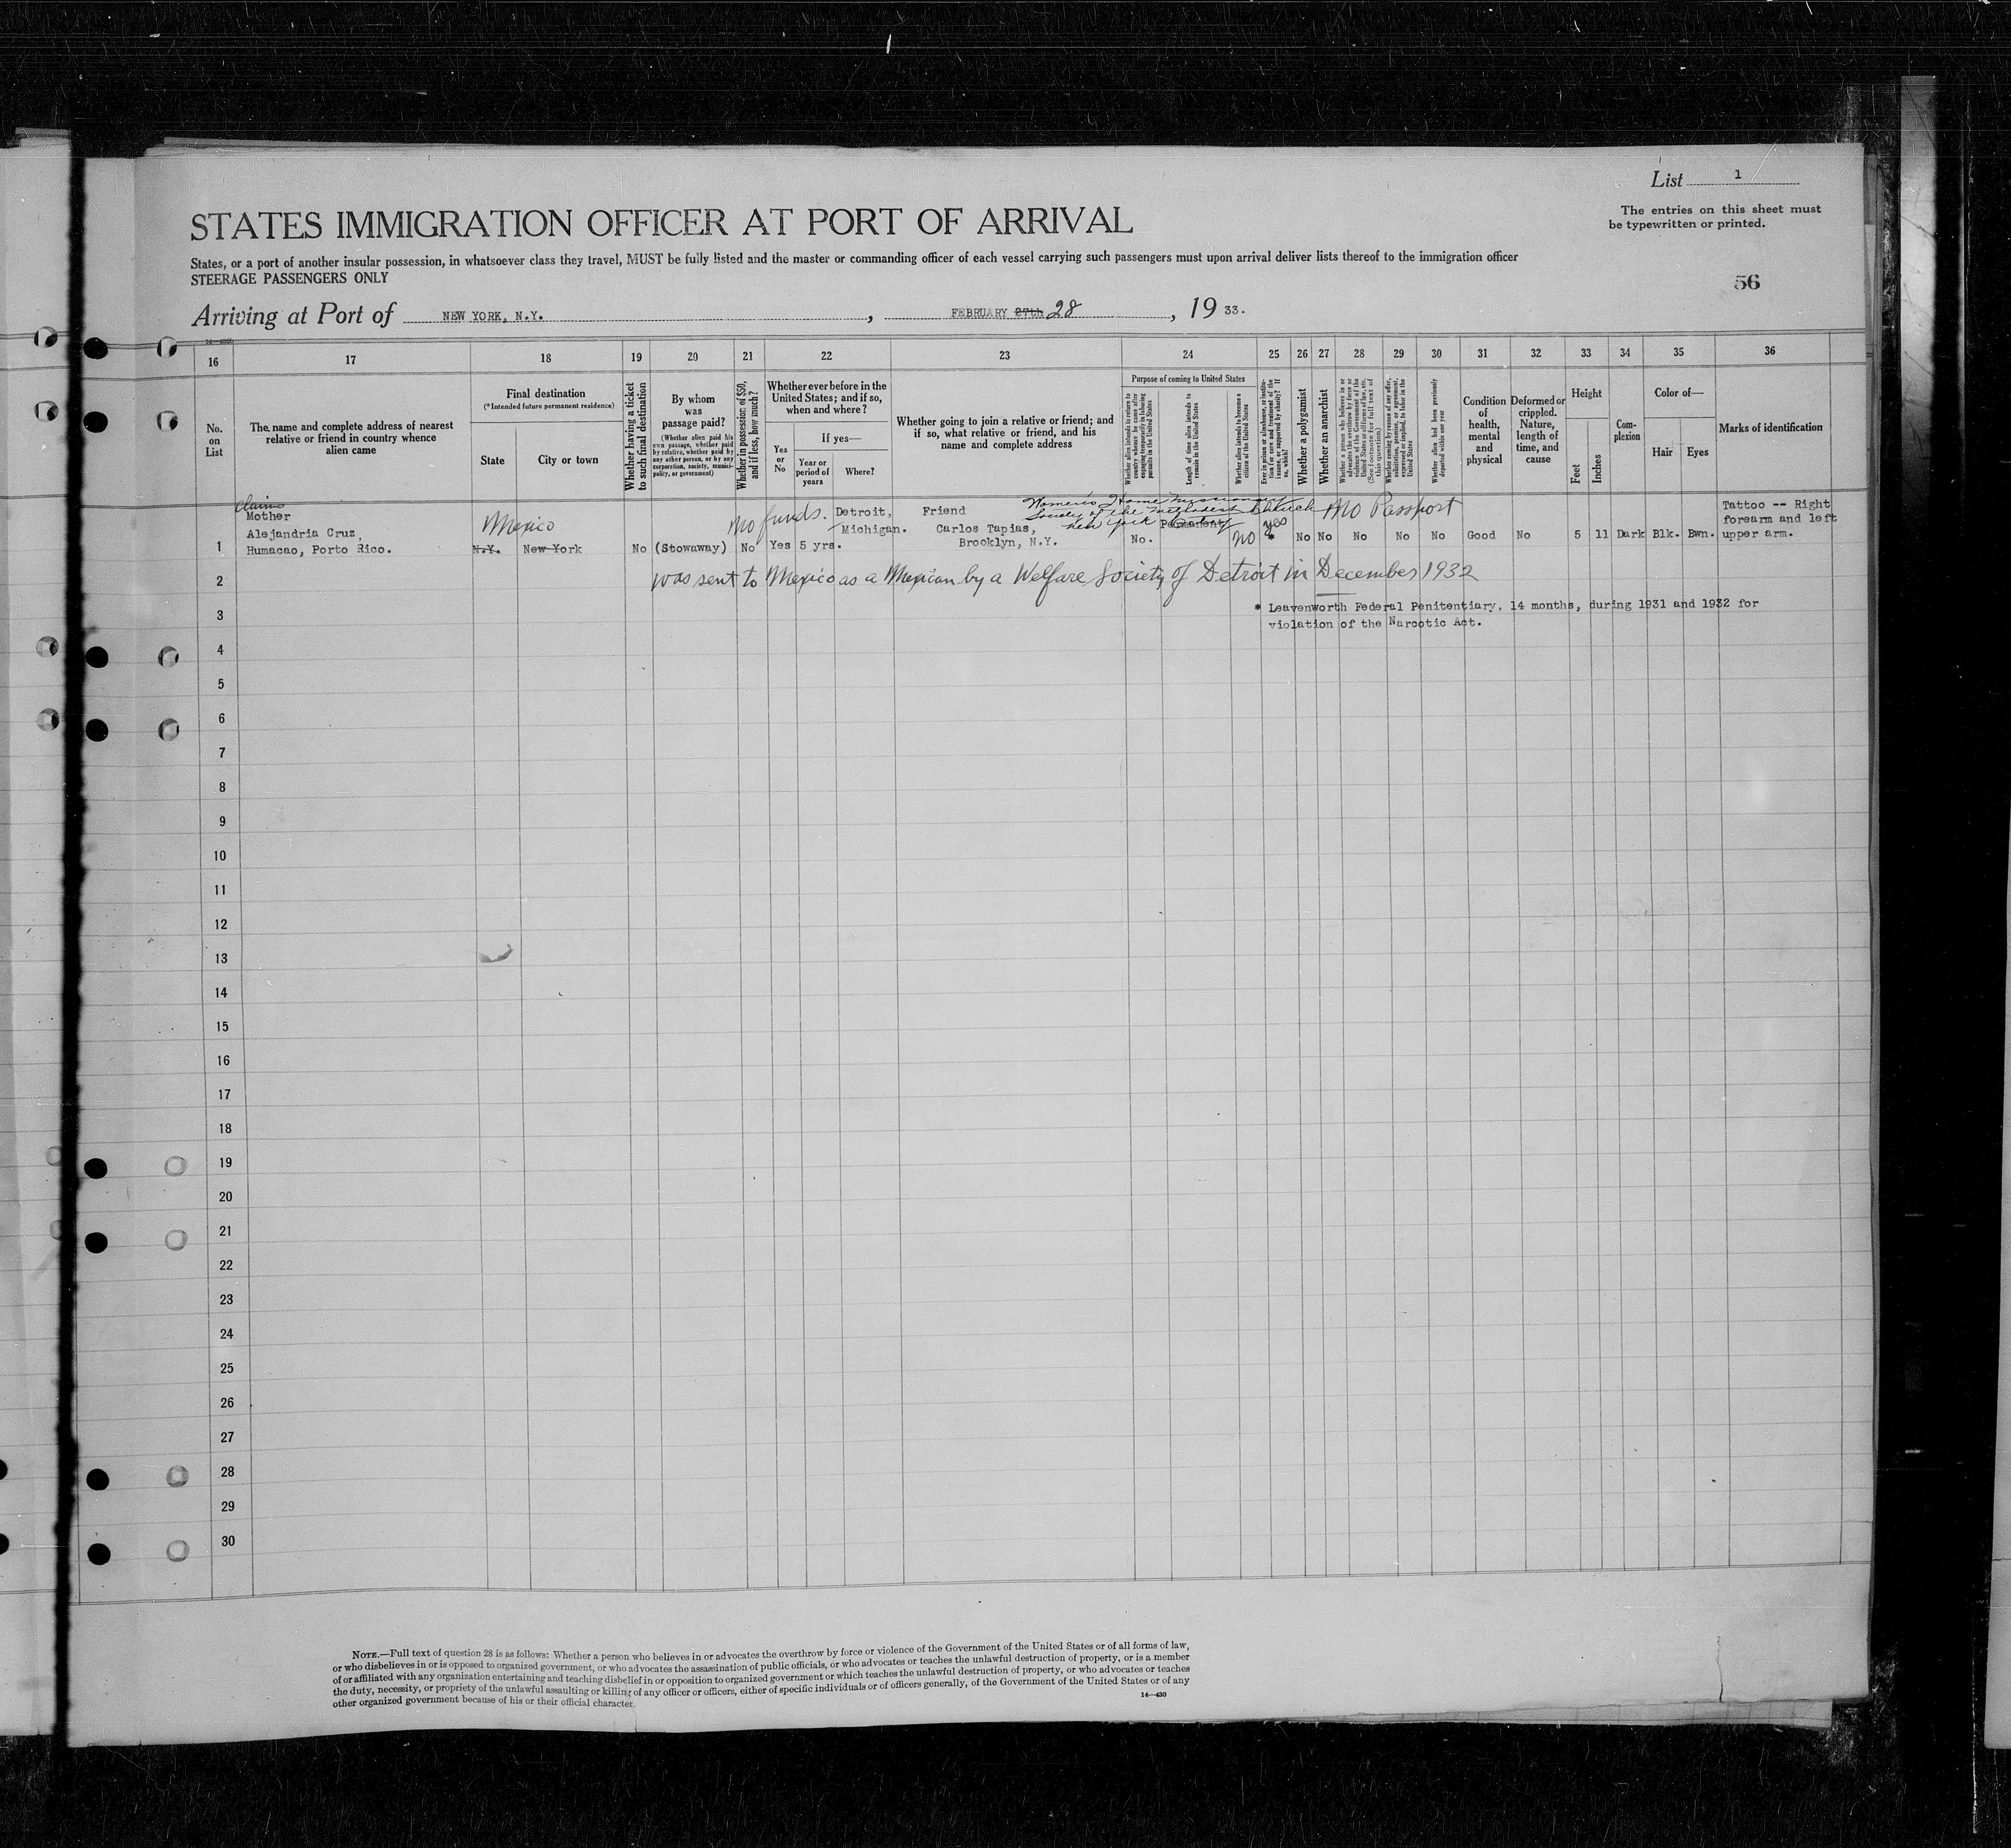 List 1
The entries on this sheet must
be typewritten or printed.
STATES IMMIGRATION OFFICER AT PORT OF ARRIVAL
States, or a port of another insular possession, in whatsoever class they travel, MUST be fully listed and the master or commanding officer of each vessel carrying such passengers must upon arrival deliver lists thereof to the immigration officer
STEERAGE PASSENGERS ONLY
56
Arriving at Port of NEW YORK, N.Y. , FEBRUARY 27th 28 , 19 33.
16 17 18 19 20 21 22 23 24 25 26 27 28 29 30 31 32 33 34 35 36
No.
on
List
The name and complete address of nearest
relative or friend in country whence
alien came
Final destination
(*Intended future permanent residence)
State
City or town
Whether having a ticket
to such final destination
By whom
was
passage paid?
(Whether alien paid his
own passage, whether paid
by relative, whether paid by
any other person, or by any
corporation, society, munici-
pality, or government)
Whether in possession of $50,
and if less, how much?
Whether ever before in the
United States; and if so,
when and where?
Yes
or
No
If yes—
Year or
period of
years
Where?
Whether going to join a relative or friend; and
if so, what relative or friend, and his
name and complete address
Purpose of coming to United States
Whether alien intends to return to
country whence he came after
engaging temporarily in laboring
pursuits in the United States
Length of time alien intends to
remain in the United States
Whether alien intends to become a
citizen of the United States
Ever in prison or almshouse, or institu-
tion for care and treatment of the
insane, or supported by charity? If
so, which?
Whether a polygamist
Whether an anarchist
Whether a person who believes in or
advocates the overthrow by force or
violence of the Government of the
United States or all forms of law, etc.
(See footnote for full text of
this question)
Whether coming by reason of any offer,
solicitation, promise, or agreement,
expressed or implied, to labor in the
United States
Whether alien had been previously
deported within one year
Condition
of
health,
mental
and
physical
Deformed or
crippled.
Nature,
length of
time, and
cause
Height
Feet
Inches
Com-
plexion
Color of—
Hair
Eyes
Marks of identification
claims
Mother
Alejandria Cruz,
Humacao, Porto Rico.
Mexico
1 N.Y. New York No (Stowaway) No Yes 5 yrs.
No funds.
Detroit,
Michigan.
Friend
Carlos Tapias,
Brooklyn, N.Y.
Women's Home Missionary
Society of the Methodist Church
New York
No. Permanent No yes * No No No No No Good No 5 11 Dark Blk. Bwn.
No Passport
Tattoo -- Right
forearm and left
upper arm.
2 was sent to Mexico as a Mexican by a Welfare Society of Detroit in December 1932
* Leavenworth Federal Penitentiary, 14 months, during 1931 and 1932 for
violation of the Narcotic Act.
3
4
5
6
7
8
9
10
11
12
13
14
15
16
17
18
19
20
21
22
23
24
25
26
27
28
29
30
NOTE.—Full text of question 28 is as follows: Whether a person who believes in or advocates the overthrow by force or violence of the Government of the United States or of all forms of law,
or who disbelieves in or is opposed to organized government, or who advocates the assassination of public officials, or who advocates or teaches the unlawful destruction of property, or is a member
of or affiliated with any organization entertaining and teaching disbelief in or opposition to organized government or which teaches the unlawful destruction of property, or who advocates or teaches
the duty, necessity, or propriety of the unlawful assaulting or killing of any officer or officers, either of specific individuals or of officers generally, of the Government of the United States or of any
other organized government because of his or their official character.
14—430